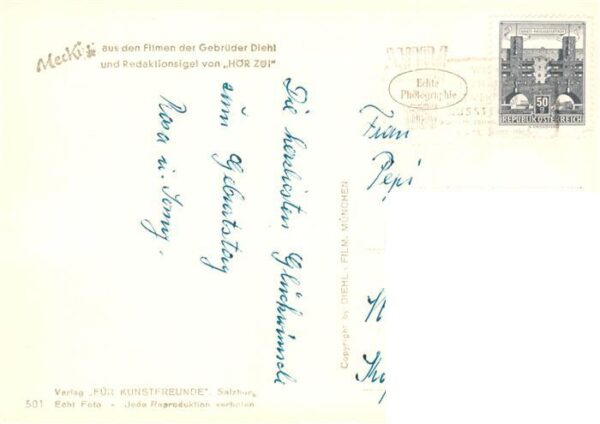 Mecki aus den Filmen der Gebrüder Diehl
und Redaktionsigel von „HÖR ZU!"
Die herzlichsten Glückwünsche
zum Geburtstag
Rosa u.
Copyright by DIEHL - FILM, MÜNCHEN
Verlag „FÜR KUNSTFREUNDE", Salzburg
501 Echt Foto - Jede Reproduktion verboten
Echte
Photographie
50
REPUBLIK ÖSTERREICH
Frau
Pepi